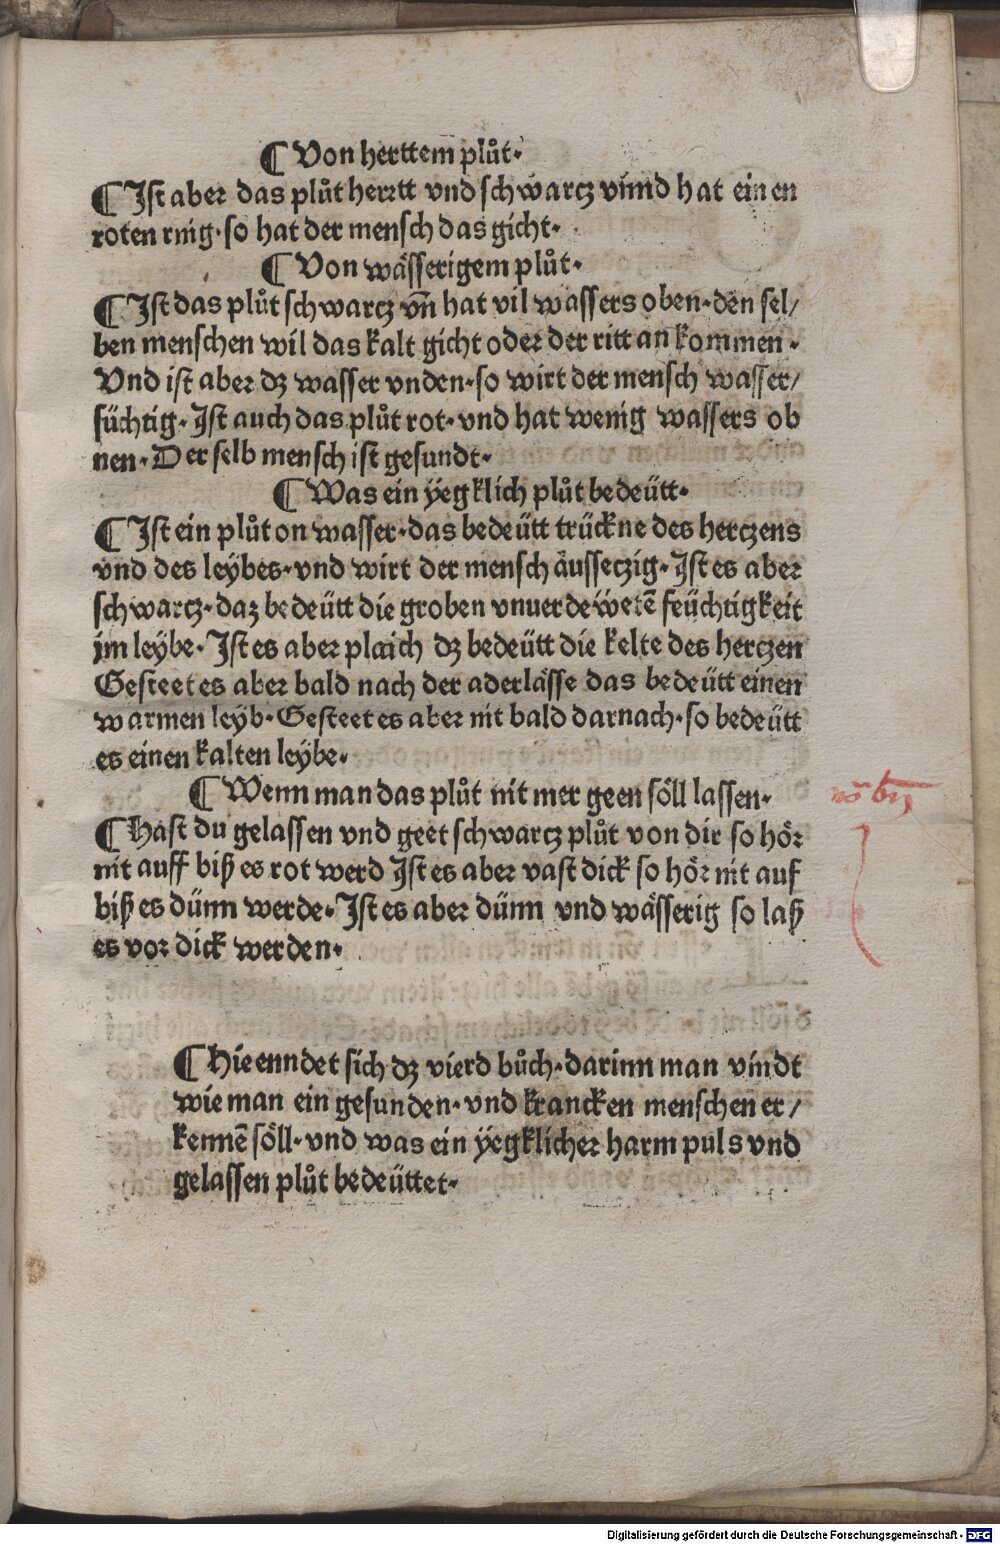 ¶ Von herttem plůt·
¶ Ist aber das plůt herrtt vnd schwartz vnnd hat einen
roten rnig· so hat der mensch das gicht·
¶ Von wässerigem plůt·
¶ Ist das plůt schwartz vn̄ hat vil wassers oben· den sel/
ben menschen wil das kalt gicht oder der ritt an kommen·
Vnd ist aber dz wasser vnden· so wirt der mensch wasser/
süchtig· Ist auch das plůt rot· vnd hat wenig wassers ob
nen· Der selb mensch ist gesundt·
¶ Was ein ÿegklich plůt bedeütt·
¶ Ist ein plůt on wasser· das bedeütt trückne des hertzens
vnd des leÿbes· vnd wirt der mensch äussetzig· Ist es aber
schwartz· daz bedeütt die groben vnuerdeẅetē feüchtigkeit
im leÿbe· Ist es aber plaich dz bedeütt die kelte des hertzen
Gesteet es aber bald nach der aderlässe das bedeütt einen
warmen leÿb· Gesteet es aber nit bald darnach· so bedeütt
es einen kalten leÿbe·
¶ Wenn man das plůt nit mer geen söll lassen·
¶ Hast du gelassen vnd geet schwartz plůt von dir so hör
nit auff biß es rot werd Ist es aber vast dick so hör nit auf
biß es dünn werde· Ist es aber dünn vnd wässerig so laß
es vor dick werden·
¶ Hie enndet sich dz vierd bůch· darinn man vindt
wie man ein gesunden· vnd krancken menschen er/
kennē söll· vnd was ein ÿegklicher harm puls vnd
gelassen plůt bedeüttet·
Digitalisierung gefördert durch die Deutsche Forschungsgemeinschaft - DFG